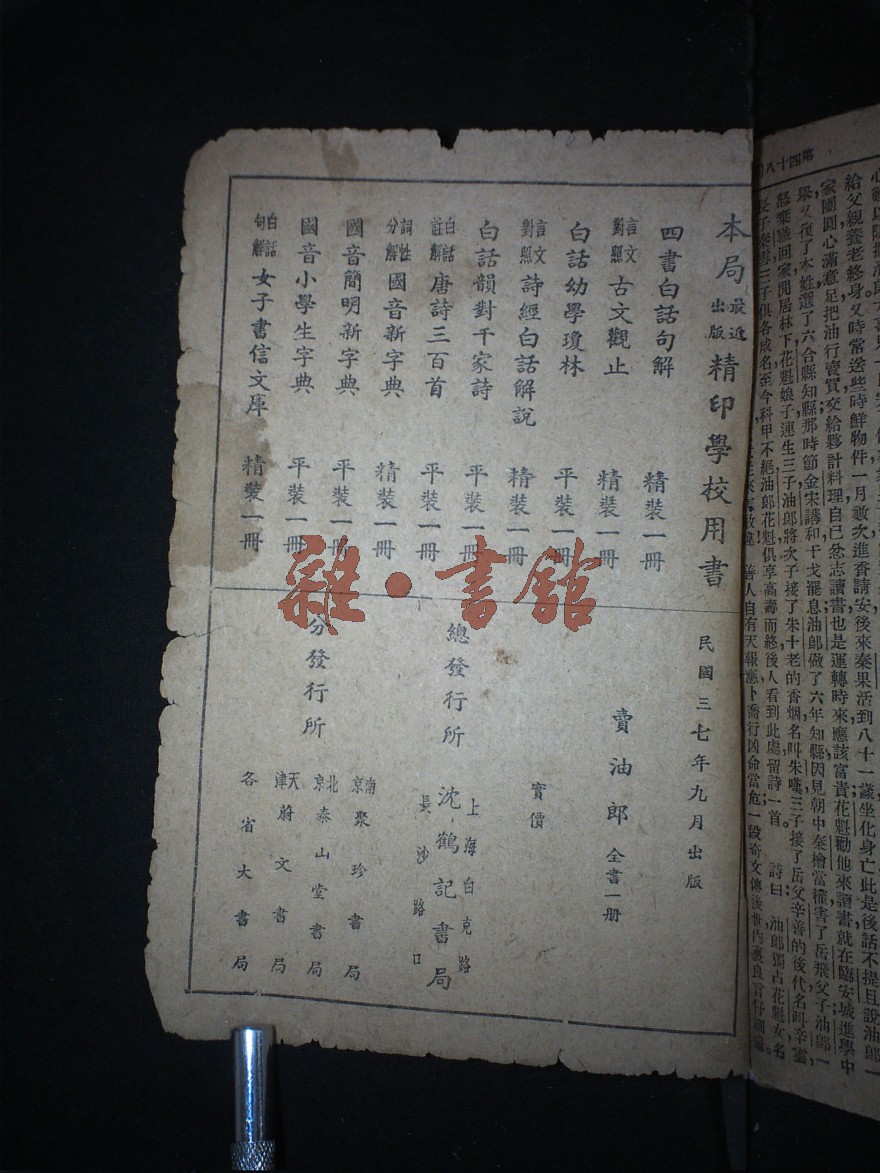 第四十八
給父親養老終身又時常送些時鮮物件一月數次進香請安後來秦果活到八十一歲坐化身亡此是後話不提且說油郎一
家團圓心滿意足把油行賣買交給夥計料理自己忿志讀書也是運轉時來應該富貴花魁勸他來讀書就在臨安城進學中
舉又復了本姓選了六合縣知縣那時節金宋講和干戈罷息油郎做了六年知縣因見朝中秦檜當權害了岳飛父子油郎一
怒棄職回家閒居林下花魁娘子連生三子油郎將次子接了朱十老的香烟名叫朱嘆三子接了岳父辛善的後代名叫辛雲
長子秦 三子俱各成名至今科甲不絕油郎花魁俱享高壽而終後人看到此處留詩一首 詩曰 油郎獨占花魁女名
善人自有天報應卜喬行凶命當危一段奇文傳後世
本局最近出版精印學校用書
四書白話句解 精裝一冊
言文對照古文觀止 精裝一冊
白話幼學瓊林 平裝一冊
言文對照詩經白話解說 精裝一冊
白話韻對千家詩 平裝一冊
白話註解唐詩三百首 平裝一冊
詞性分解國音新字典 精裝一冊
國音簡明新字典 平裝一冊
國音小學生字典 平裝一冊
白話句解女子書信文庫 精裝一冊
民國三七年九月出版
賣油郎 全書一冊
實價
總發行所 上海白克路
沈鶴記書局
長沙路口
分發行所
南京聚珍書局
北京泰山堂書局
天津蔚文書局
各省大書局
雜·書館